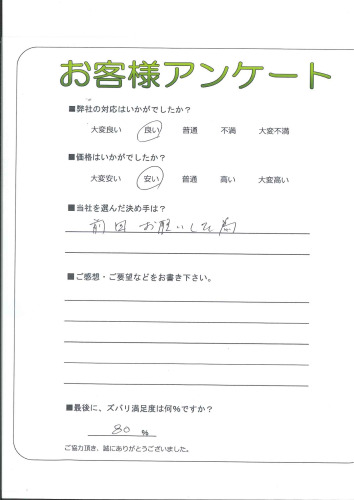 お客様アンケート
■弊社の対応はいかがでしたか？
大変良い 良い 普通 不満 大変不満
■価格はいかがでしたか？
大変安い 安い 普通 高い 大変高い
■当社を選んだ決め手は？
前回 お願いした為
■ご感想・ご要望などをお書き下さい。
■最後に、ズバリ満足度は何%ですか？
80 %
ご協力頂き、誠にありがとうございました。